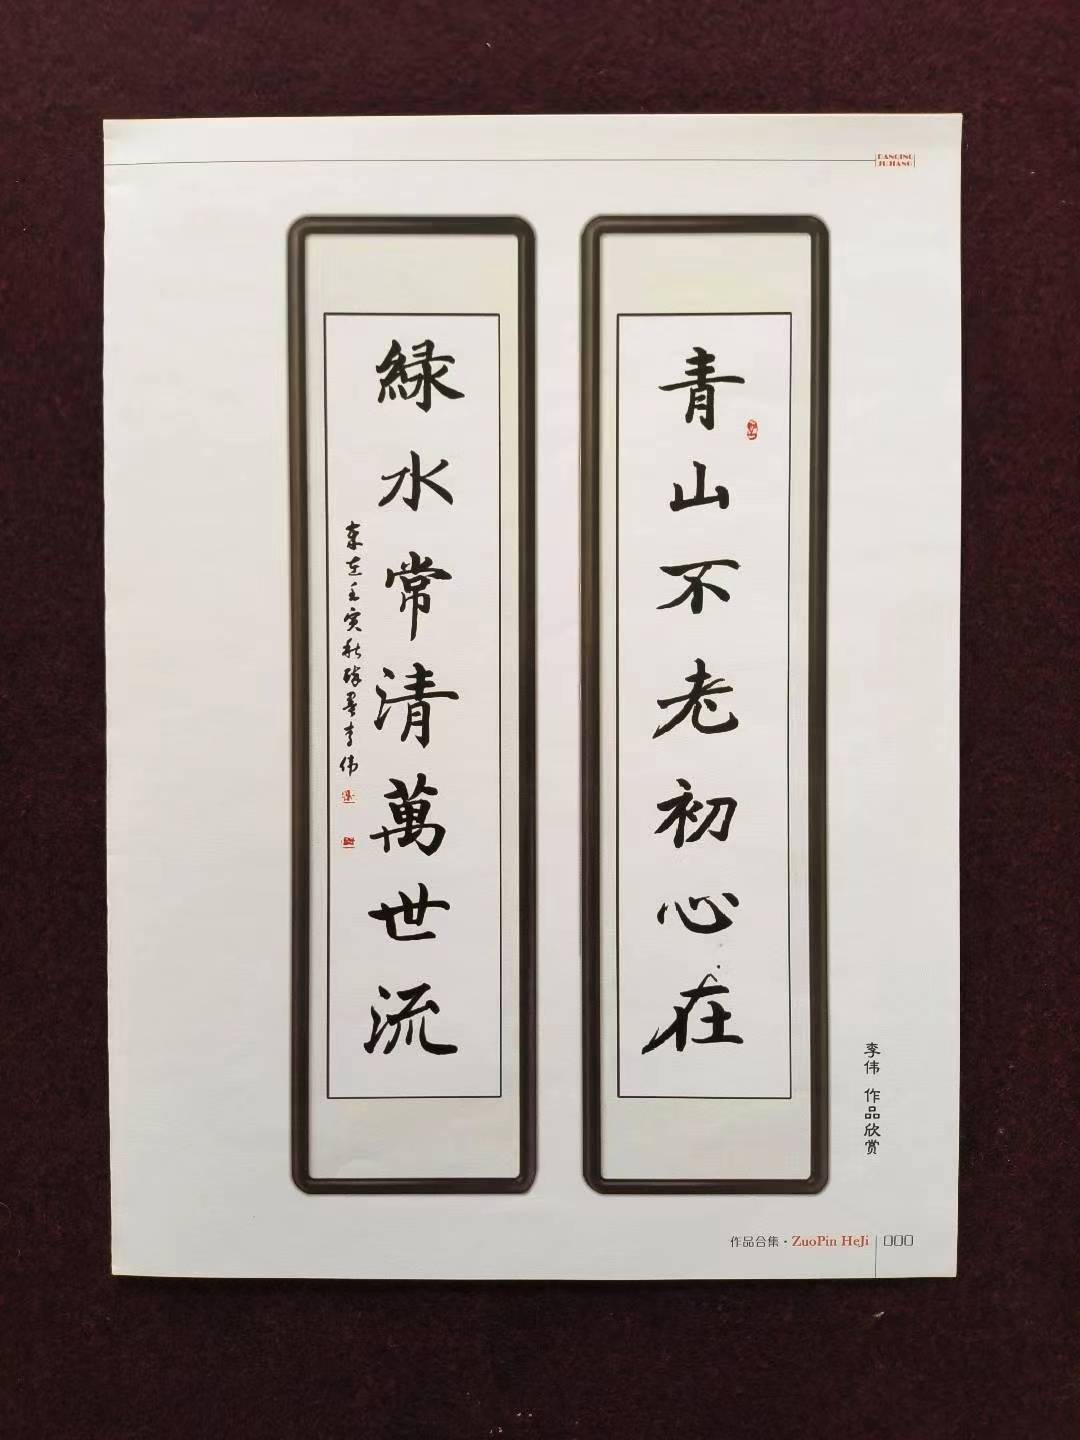 DANQING
JUJIANG
青山不老初心在
緑水常清萬世流
壬寅秋
李伟
李伟 作品欣赏
作品合集·ZuoPin HeJi
000